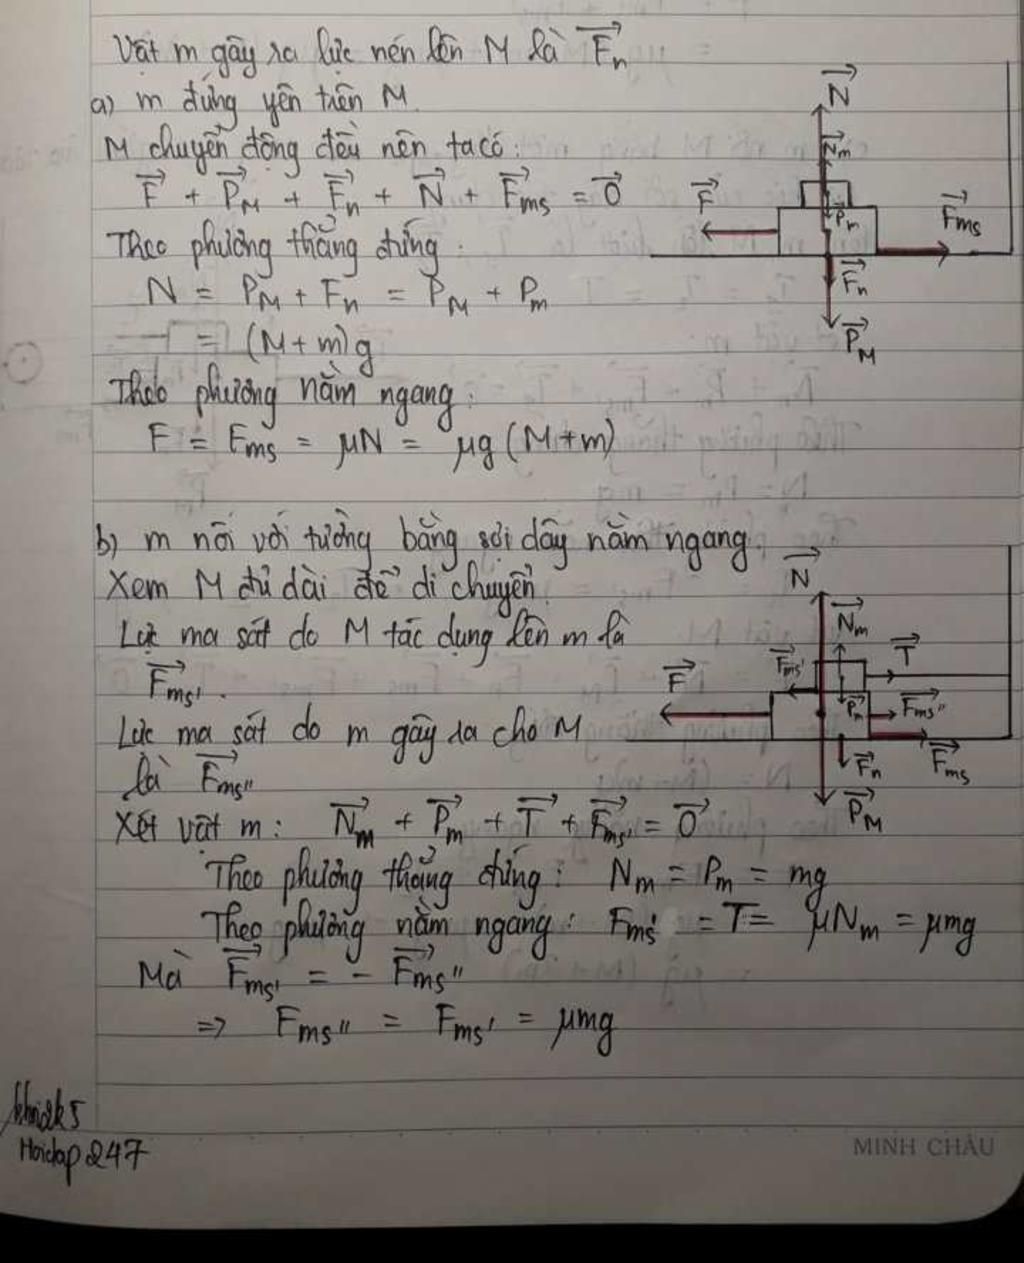 Vật m gây ra lực nén lên M là F⃗n
a) m đứng yên trên M.
M chuyển động đều nên ta có:
F⃗ + P⃗M + F⃗n + N⃗ + F⃗ms = 0⃗
Theo phương thẳng đứng:
N = PM + Fn = PM + Pm
= (M+m)g
Theo phương nằm ngang:
F = Fms = μN = μg(M+m)
N⃗
N⃗m
F⃗
P⃗m
F⃗ms
F⃗n
P⃗M
b) m nối với tường bằng sợi dây nằm ngang.
Xem M đủ dài để di chuyển.
Lực ma sát do M tác dụng lên m là
F⃗ms'.
Lực ma sát do m gây ra cho M
là F⃗ms''
N⃗
N⃗m
F⃗ms'
T⃗
F⃗
P⃗m
F⃗ms''
F⃗n
F⃗ms
P⃗M
Xét vật m: N⃗m + P⃗m + T⃗ + F⃗ms' = 0⃗
Theo phương thẳng đứng: Nm = Pm = mg
Theo phương nằm ngang: Fms' = T = μNm = μmg
Mà F⃗ms' = - F⃗ms''
=> Fms'' = Fms' = μmg
Hoidap247
MINH CHÂU